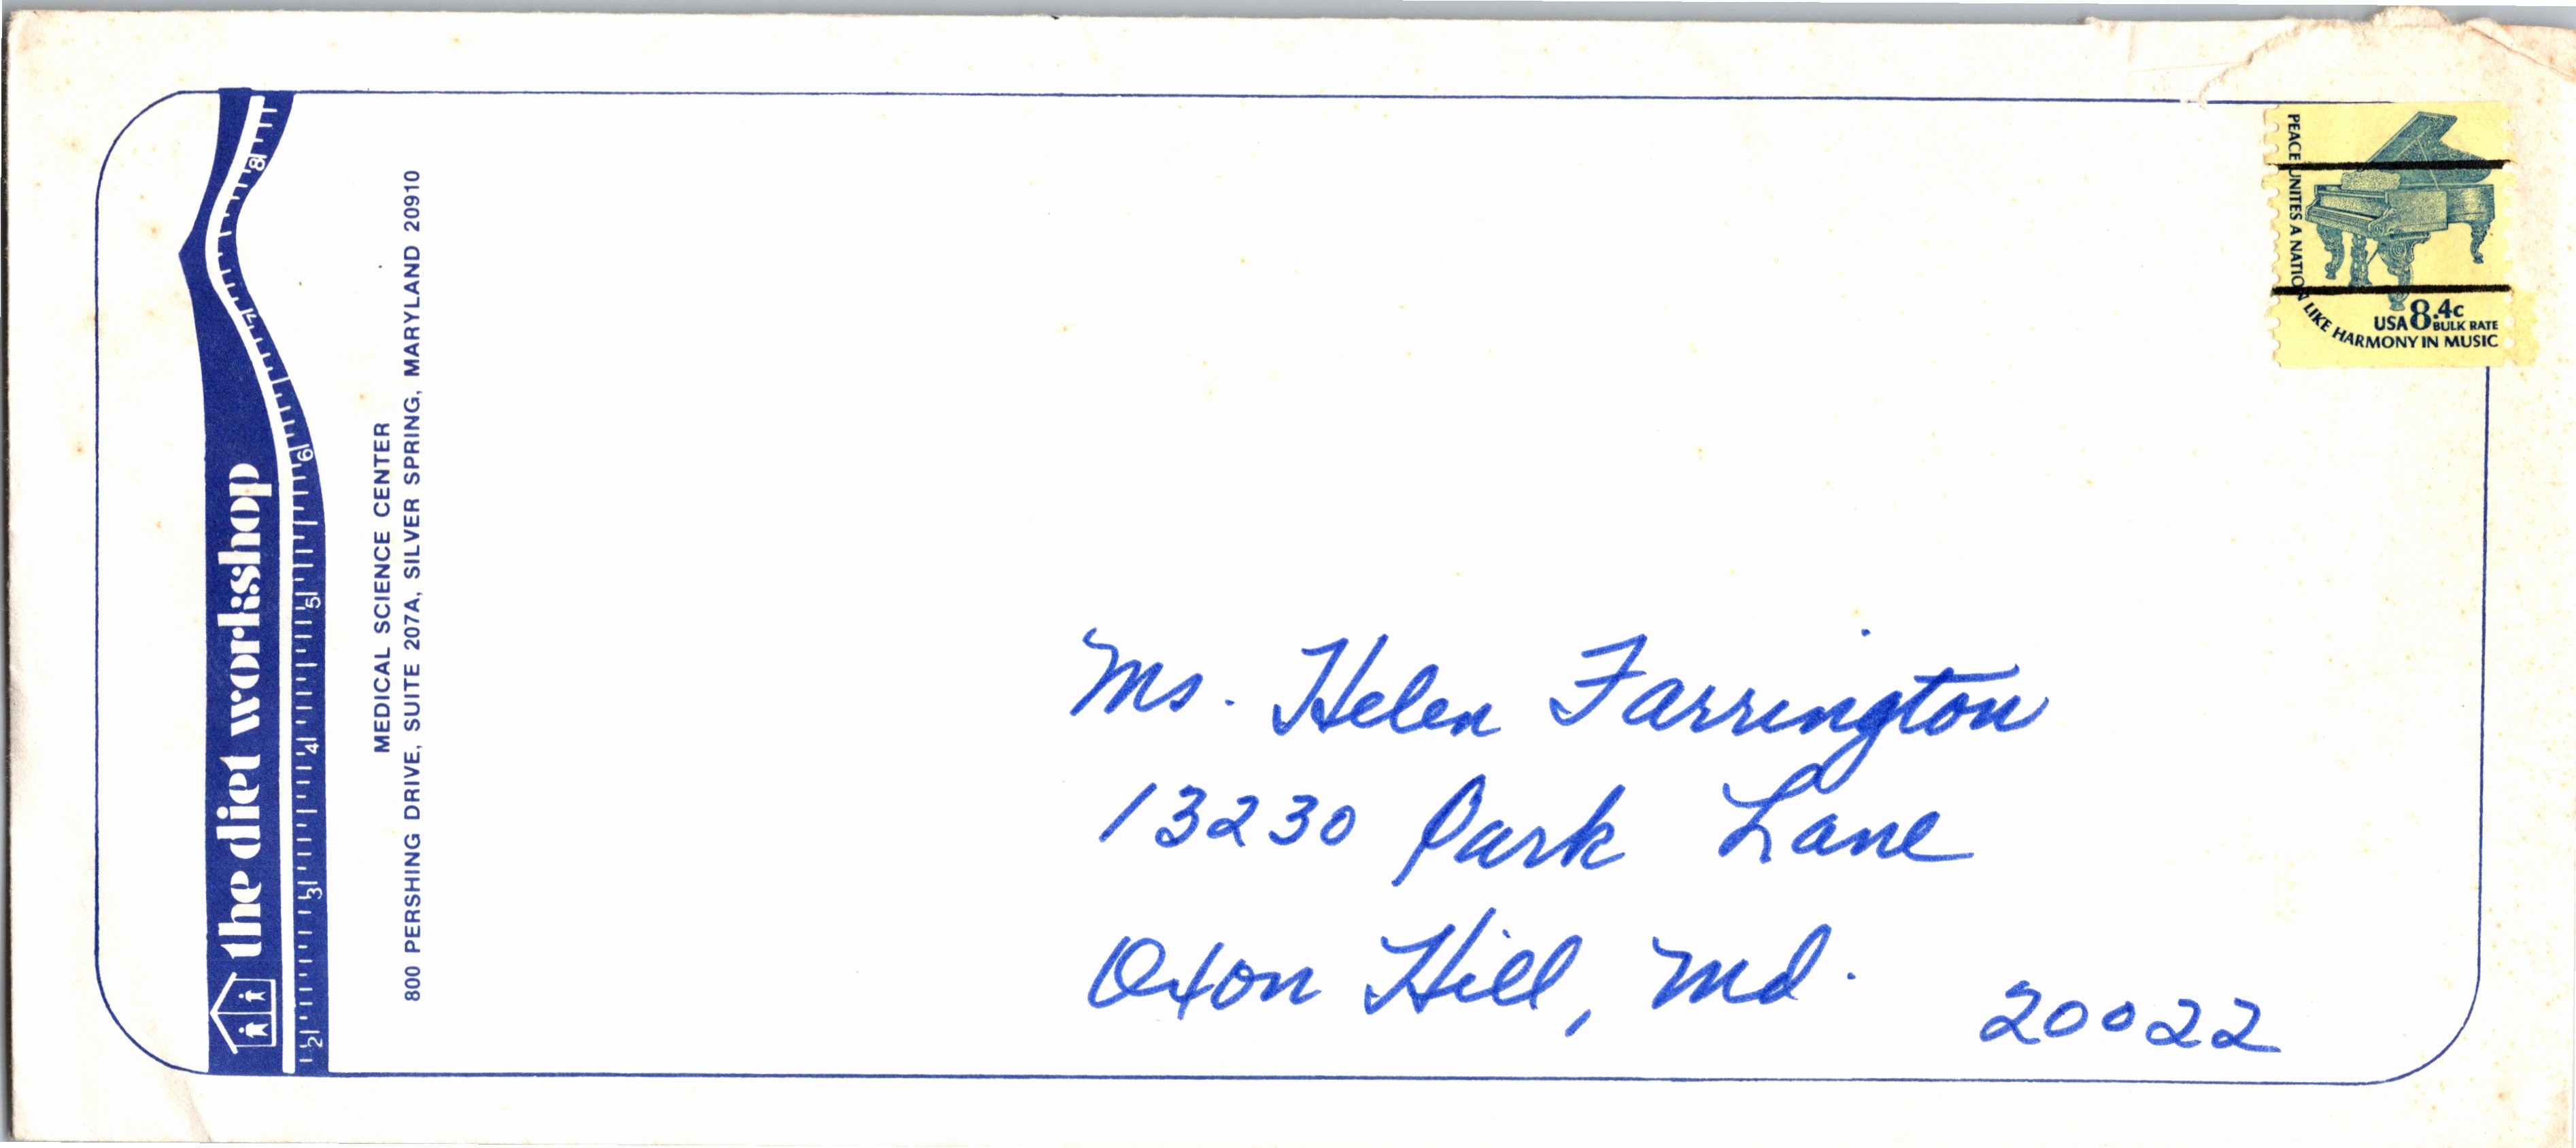 the diet workshop
2 3 4 5 6 7 8
MEDICAL SCIENCE CENTER
800 PERSHING DRIVE, SUITE 207A, SILVER SPRING, MARYLAND 20910
PEACE UNITES A NATION LIKE HARMONY IN MUSIC
USA 8.4c
BULK RATE
Ms. Helen Farrington
13230 Park Lane
Oxon Hill, Md.
20022